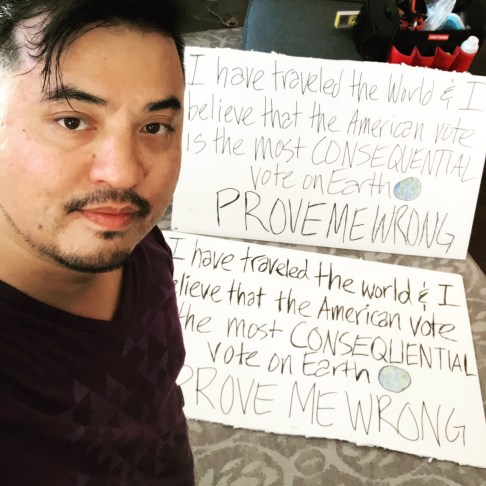 I have traveled the World & I
believe that the American vote
is the most CONSEQUENTIAL
vote on Earth
PROVE ME WRONG
I have traveled the world & I
elieve that the American vote
the most CONSEQUENTIAL
vote on Earth
PROVE ME WRONG